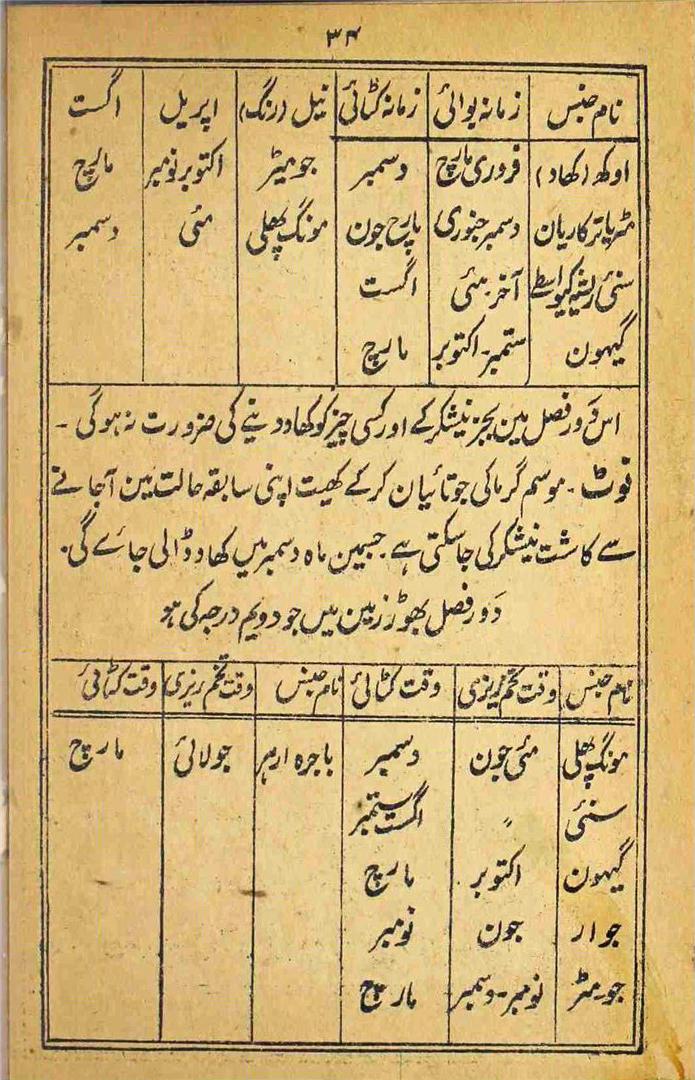 ۳۴
نام جنس زمانہ بوائی زمانہ کٹائی نیل (رنگ) اپریل اگست
اوکھ (کھاد) فروری مارچ دسمبر جو مٹر اکتوبر نومبر مارچ
مٹر یا ترکاریان دسمبر جنوری مارچ جون مونگ پھلی مئی دسمبر
سنئی ریشہ کیواسطے آخر مئی اگست
گیہون ستمبر۔ اکتوبر مارچ
اس دَور فصل مین بجز نیشکر کے اور کسی چیز کو کھاد دینے کی ضرورت نہ ہوگی ۔
نوٹ ۔ موسم گرما کی جوتائیان کرکے کھیت اپنی سابقہ حالت مین آجانے
سے کاشت نیشکر کی جاسکتی ہے ۔ جسمین ماہ دسمبر میں کھاد ڈالی جائے گی ۔
دَور فصل بھوڑ زمین میں جو دویم درجہ کی ہو
نام جنس وقت تخم ریزی وقت کٹائی نام جنس وقت تخم ریزی وقت کٹائی
مونگ پھلی مئی جون دسمبر باجرہ ارہر جولائی مارچ
سنئی ״ اگست ستمبر
گیہون اکتوبر مارچ
جوار جون نومبر
جو۔ مٹر نومبر۔ دسمبر مارچ